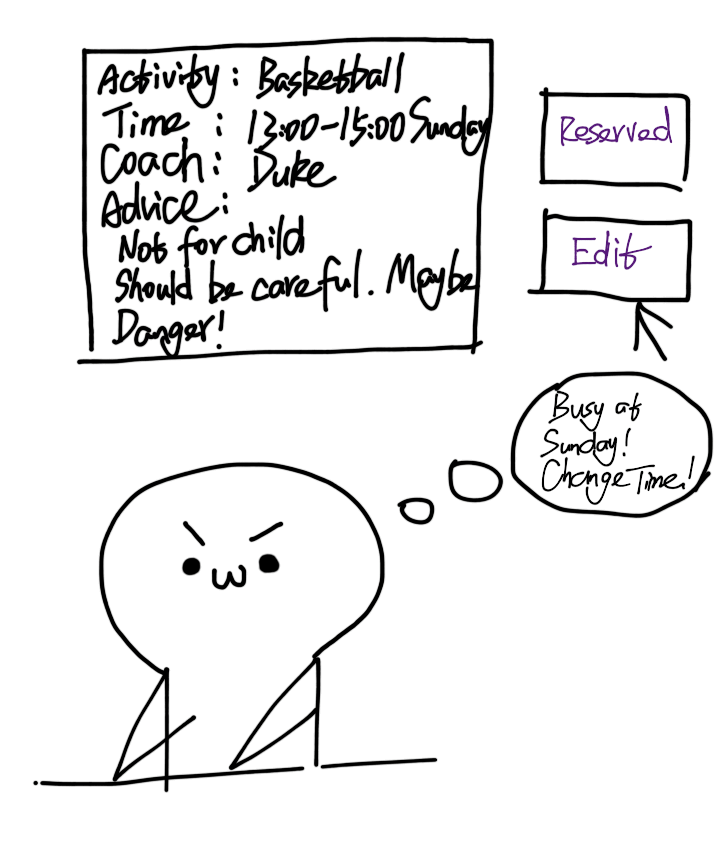 Activity : Basketball
Time : 13:00-15:00 Sunday
Coach : Duke
Advice :
Not for child
Should be careful. Maybe
Danger!
Reserved
Edit
Busy at
Sunday!
Change Time!